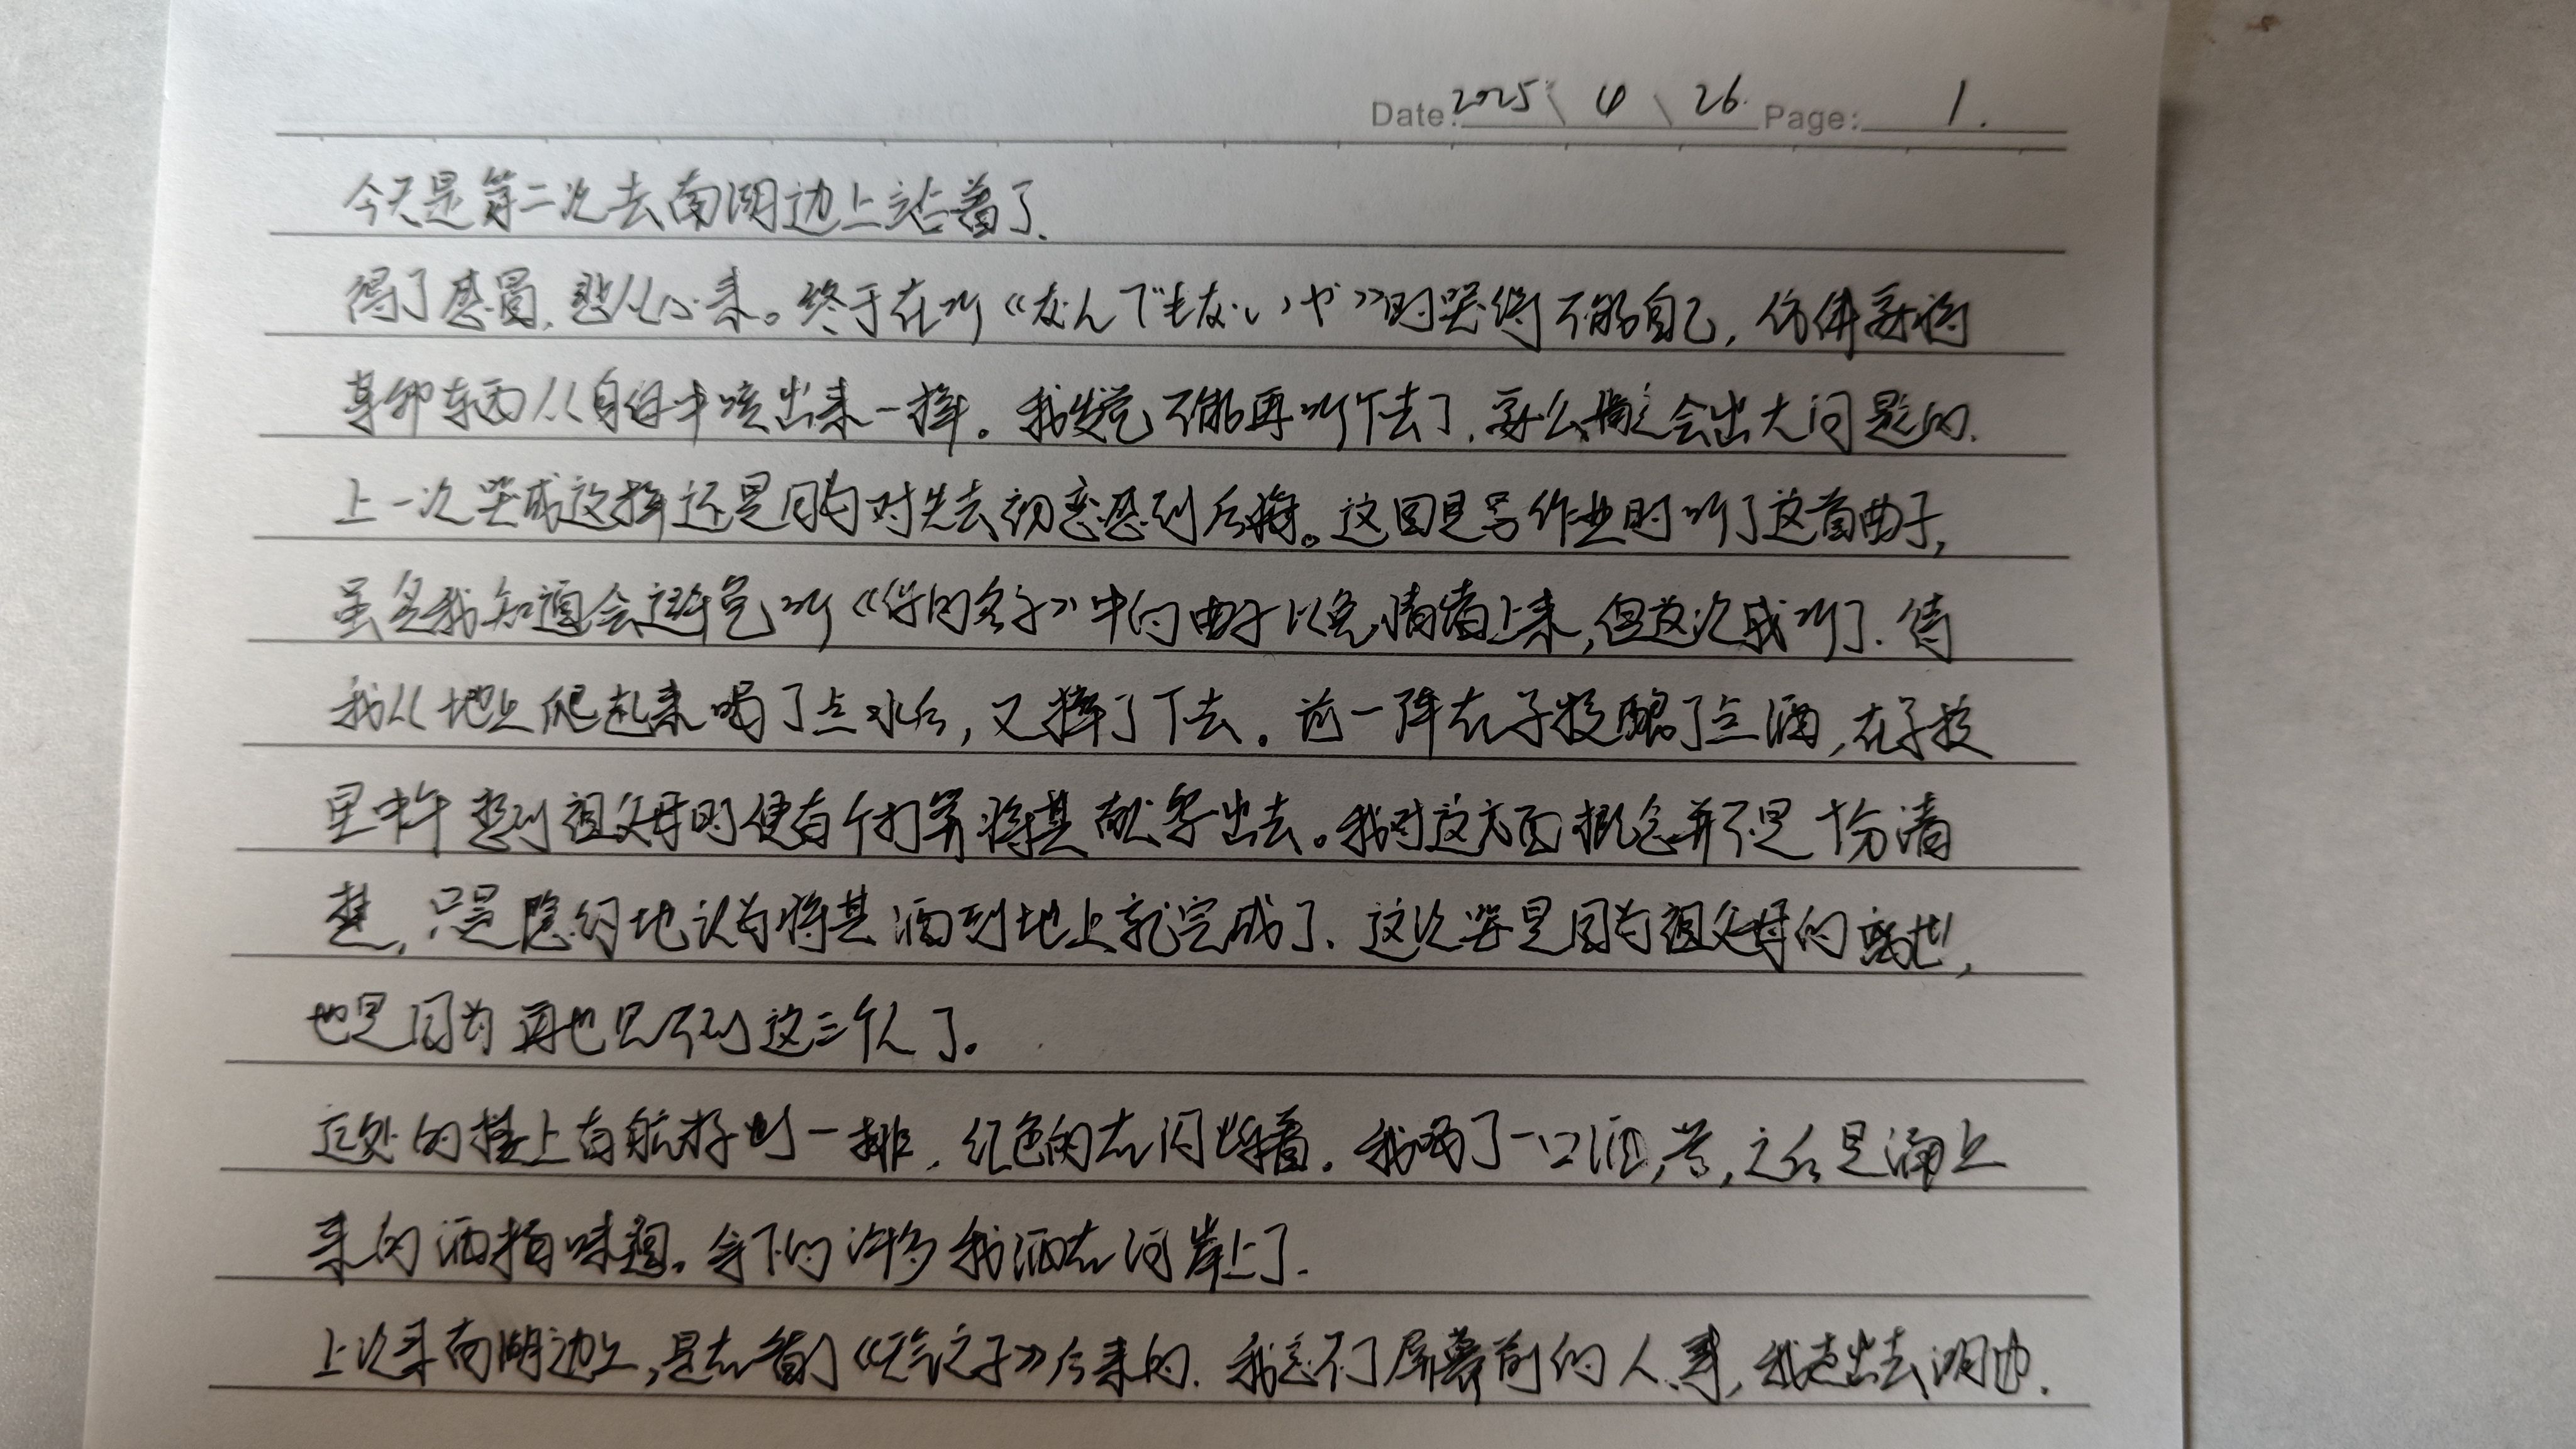 Date: 2025 \ 4 \ 26. Page: 1.
今天是第二次去南湖边上站着了.
得了感冒,悲从心来。终于在听《なんでもないや》时哭得不能自已,仿佛要将
某部东西从身体中喷出来一样。我发觉不能再听下去了,要么指定会出大问题的.
上一次哭成这样还是因为对失去初恋感到后悔。这回是写作业时听了这首曲子,
虽是我知道会避免听《你的名字》中的曲子以免情绪上来,但这次我听了.待
我从地上爬起来喝了点水后,又摔了下去。前一阵在学校醒了点酒,在学校
里中午想到祖父母时便有个打算将其献祭出去。我对这方面概念并不是十分清
楚,只是隐约地认为将其洒到地上就完成了.这次许是因为祖父母的离世,
也是因为再也见不到这三个人了。
远处的楼上有航标灯一排,红色的在闪烁着.我喝了一口酒,苦,之后是涌上
来的酒精味道。余下的许多我洒在河岸上了.
上次来南湖边上,是在看了《天气之子》后来的.我忘不了屏幕前的人影,我走出去湖边.